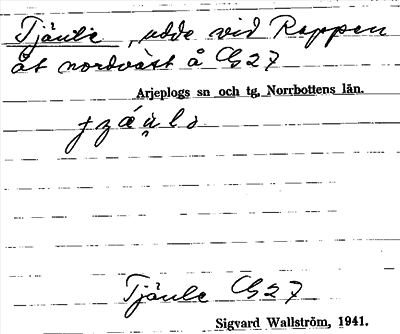 Tjäule, udde vid Rappen
åt nordväst å C27
Arjeplogs sn och tg, Norrbottens län.
Tjäule C27
Sigvard Wallström, 1941.